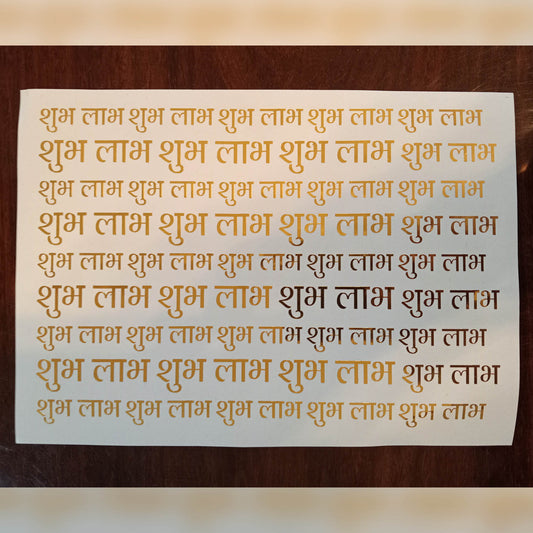 शुभ लाभ शुभ लाभ शुभ लाभ शुभ लाभ शुभ लाभ
शुभ लाभ शुभ लाभ शुभ लाभ शुभ लाभ
शुभ लाभ शुभ लाभ शुभ लाभ शुभ लाभ शुभ लाभ
शुभ लाभ शुभ लाभ शुभ लाभ शुभ लाभ
शुभ लाभ शुभ लाभ शुभ लाभ शुभ लाभ शुभ लाभ
शुभ लाभ शुभ लाभ शुभ लाभ शुभ लाभ
शुभ लाभ शुभ लाभ शुभ लाभ शुभ लाभ शुभ लाभ
शुभ लाभ शुभ लाभ शुभ लाभ शुभ लाभ
शुभ लाभ शुभ लाभ शुभ लाभ शुभ लाभ शुभ लाभ